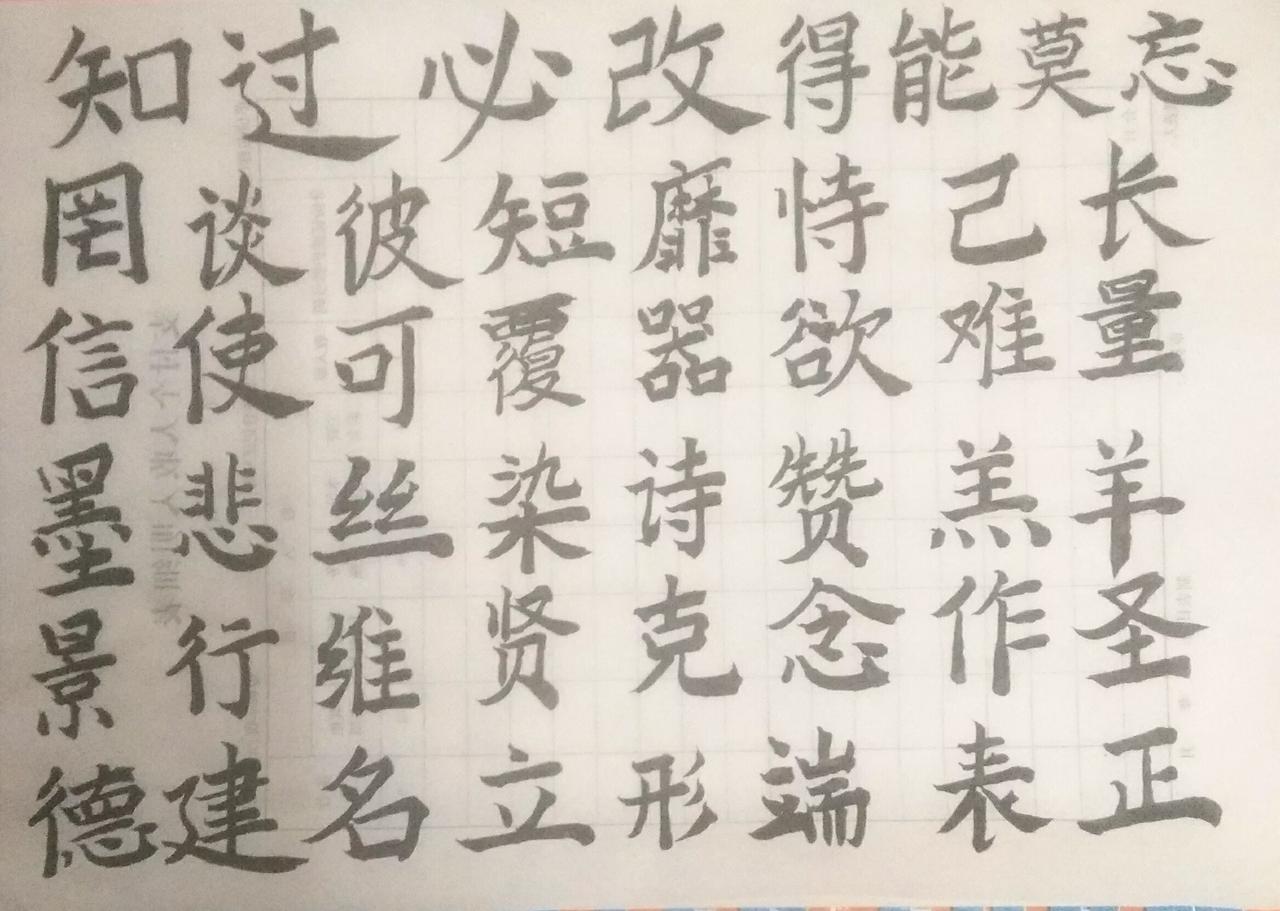 知过必改得能莫忘
罔谈彼短靡恃己长
信使可覆器欲难量
墨悲丝染诗赞羔羊
景行维贤克念作圣
德建名立形端表正